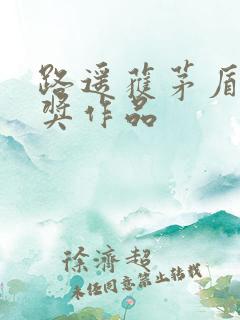 路遥蓷茅盾
奖作品
徐濟超
未经同意禁止转载